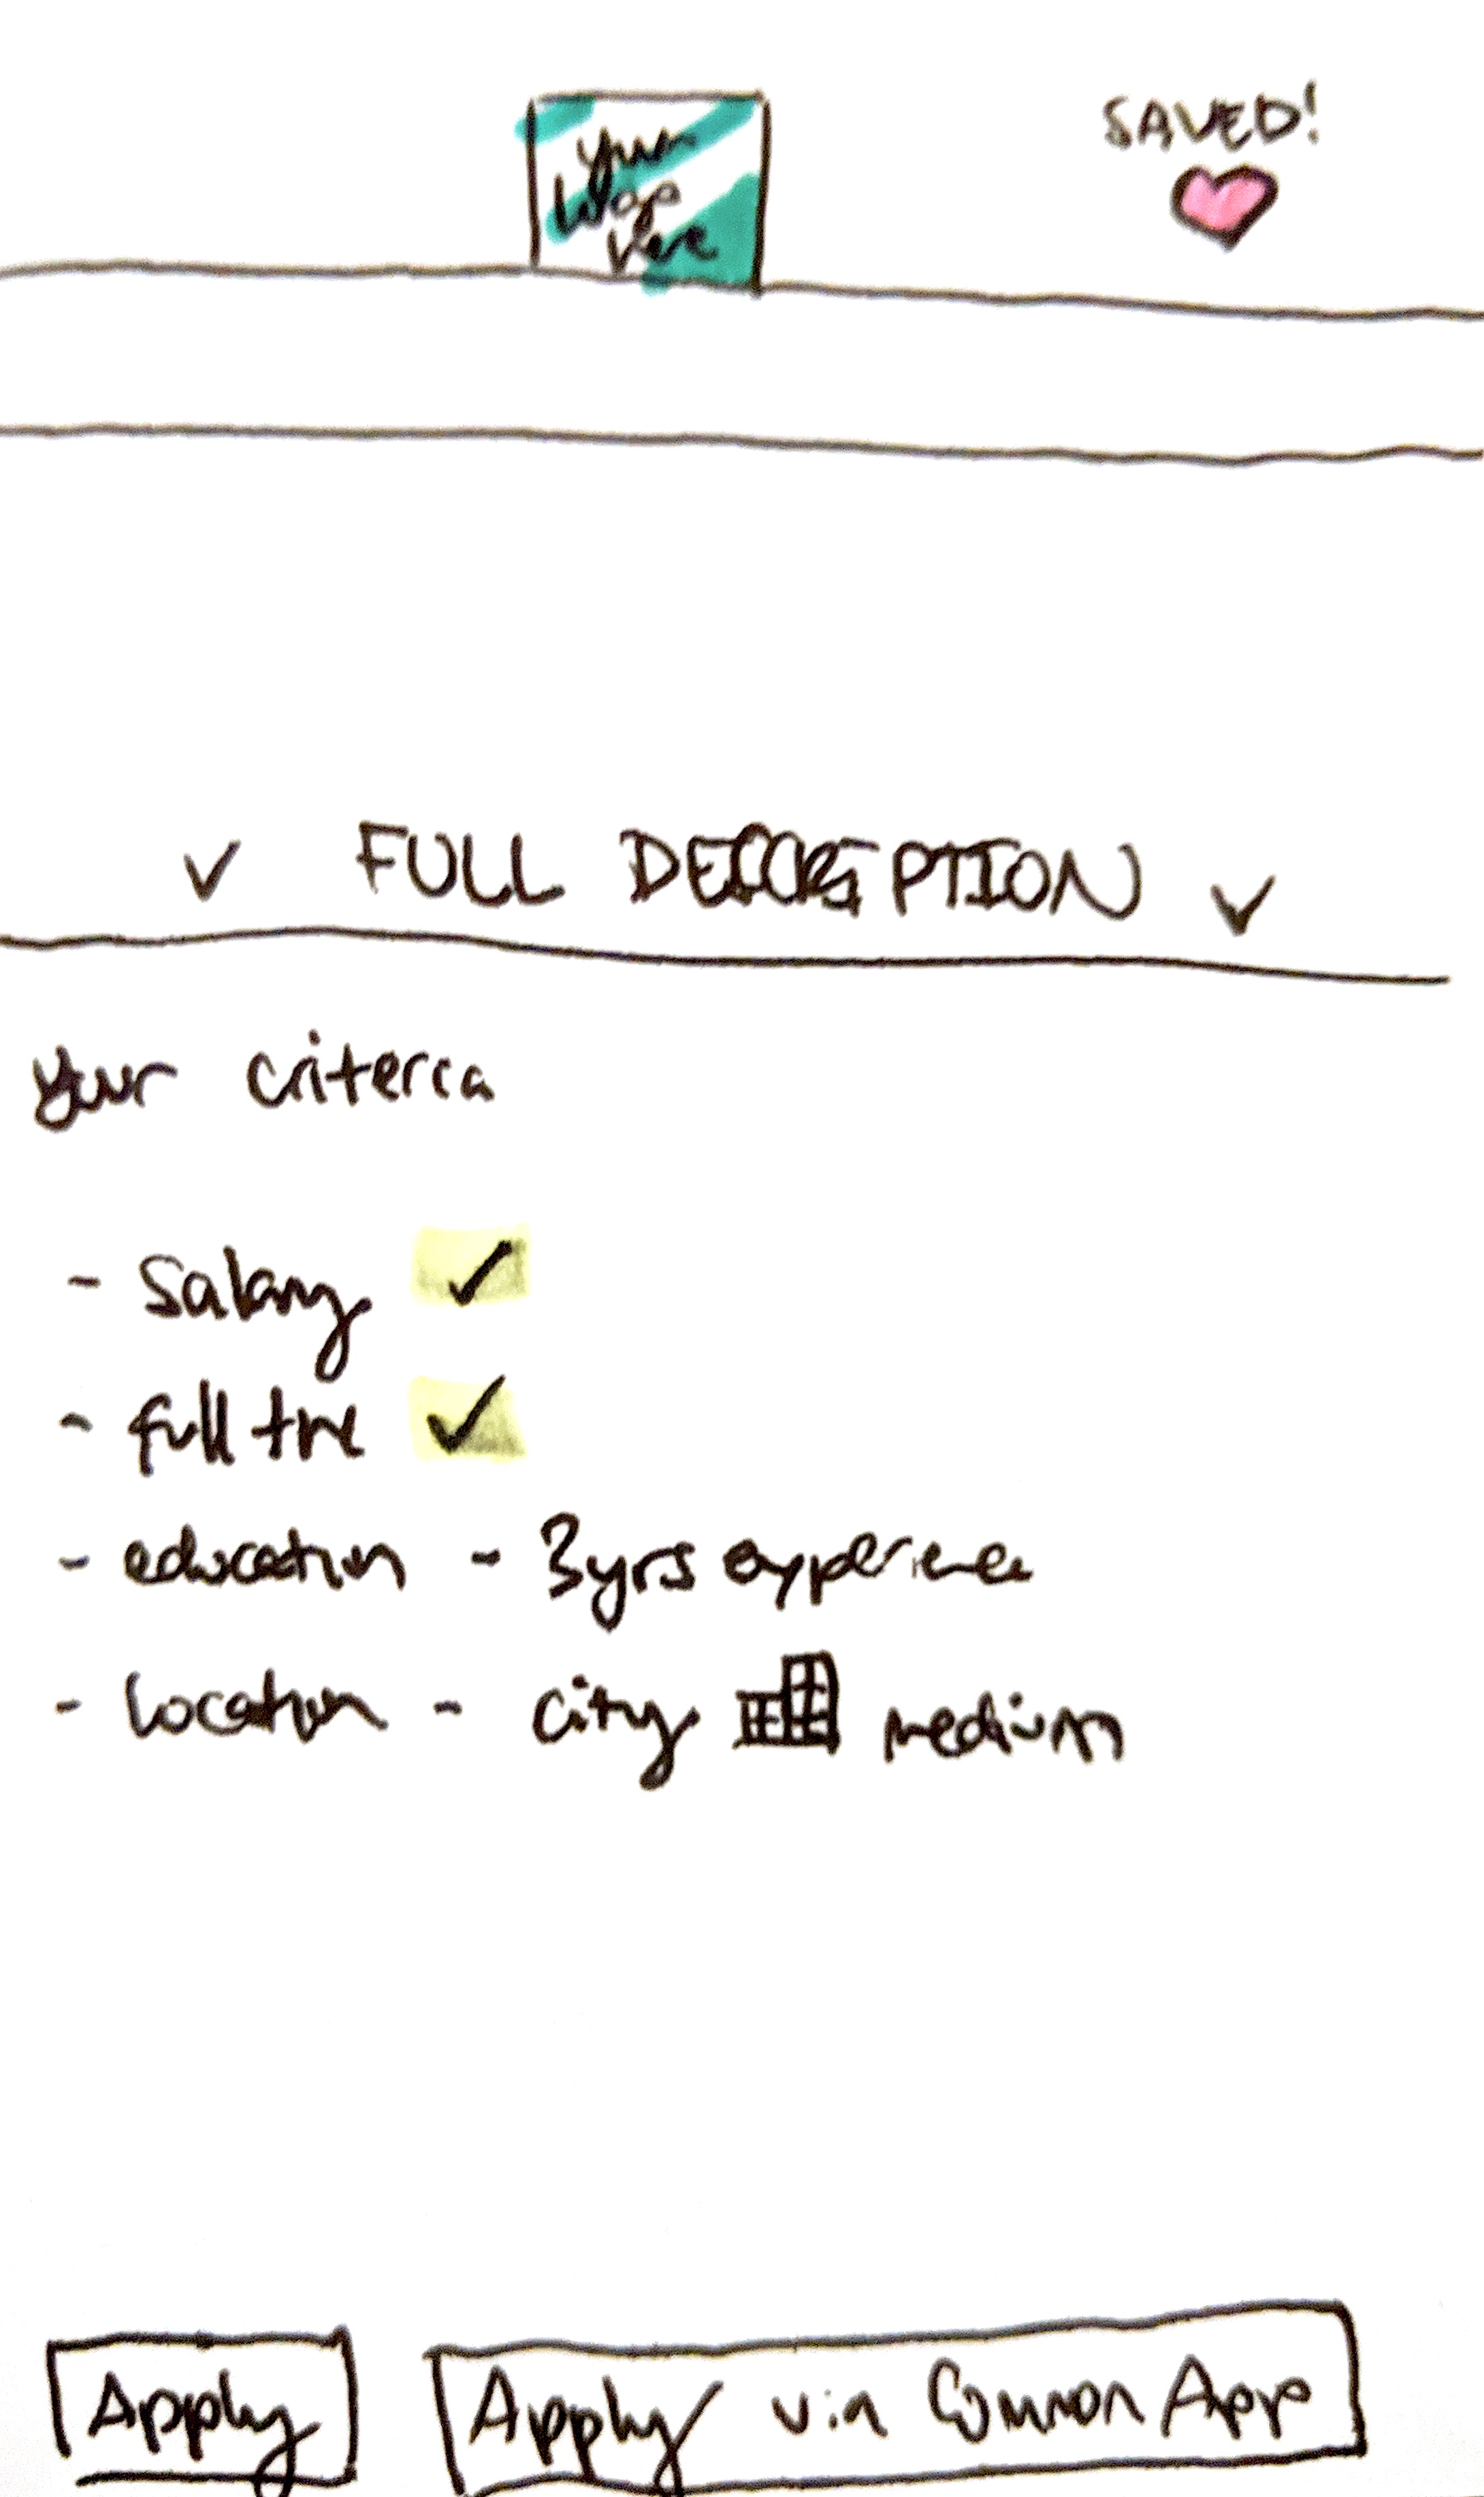 SAVED!
your
logo
here
FULL DESCRIPTION
your criteria
- Salary ✓
- full time ✓
- education - 3yrs experience
- location - city medium
Apply
Apply via Common App